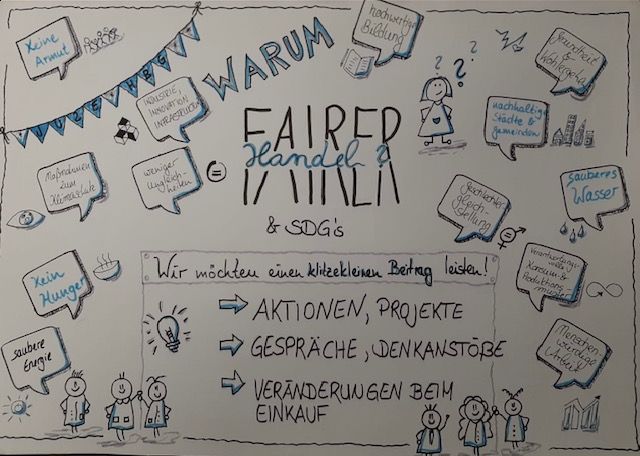 Keine
Armut
WARUM
hochwertige
Bildung
Gesundheit
&
Wohlergehen
INDUSTRIE,
INNOVATION
INFRASTRUKTUR
nachhaltige
Städte &
gemeinden
FAIRER
Handel?
& SDG's
Maßnahmen
zum
Klimaschutz
weniger
Ungleich-
heiten
Geschlechter
gleich-
stellung
sauberes
Wasser
Kein
Hunger
Verantwortungs
voller
Konsum &
Produktions
muster
Wir möchten einen klitzekleinen Beitrag leisten!
AKTIONEN, PROJEKTE
GESPRÄCHE, DENKANSTÖßE
VERÄNDERUNGEN BEIM
EINKAUF
saubere
Energie
Menschen
würdige
Arbeit